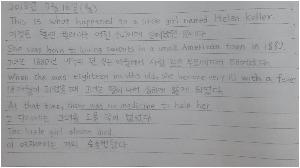 2018년 7월 16일(월)
This is what happened to a little girl named Helen Keller.
이것은 헬렌 켈러라는 어린 소녀에게
She was born to loving parents in a small American town in 1880.
그녀는 1880년 미국의
When she was eighteen months old, she became very ill with a fever
그녀가
At that time, there was no medicine to help her
그 당시에는 그녀를 도울 약이 없었다
The little girl almost died.
이 어린 거의 죽을뻔했다